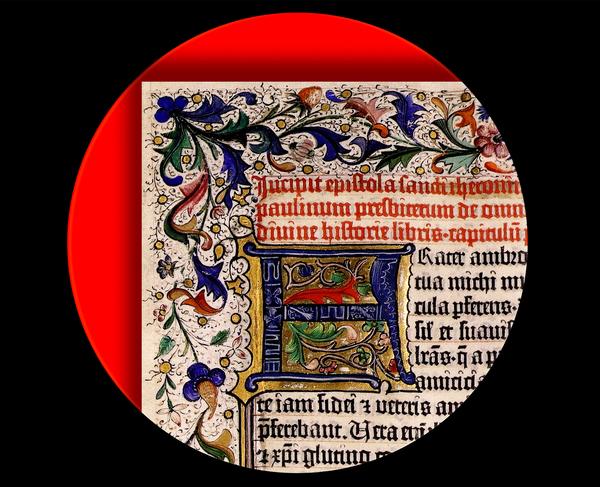 Incipit epistola sancti iheronim
paulinum presbiterum de omn
diuine historie libris. capitulu p
F Rater ambro
tua michi mu
cula pferens.
sil et suauis
lrās. q a p
amicicia
te iam fidei ⁊ veteris am
pferebant. Vera eni
⁊ xpi glutino